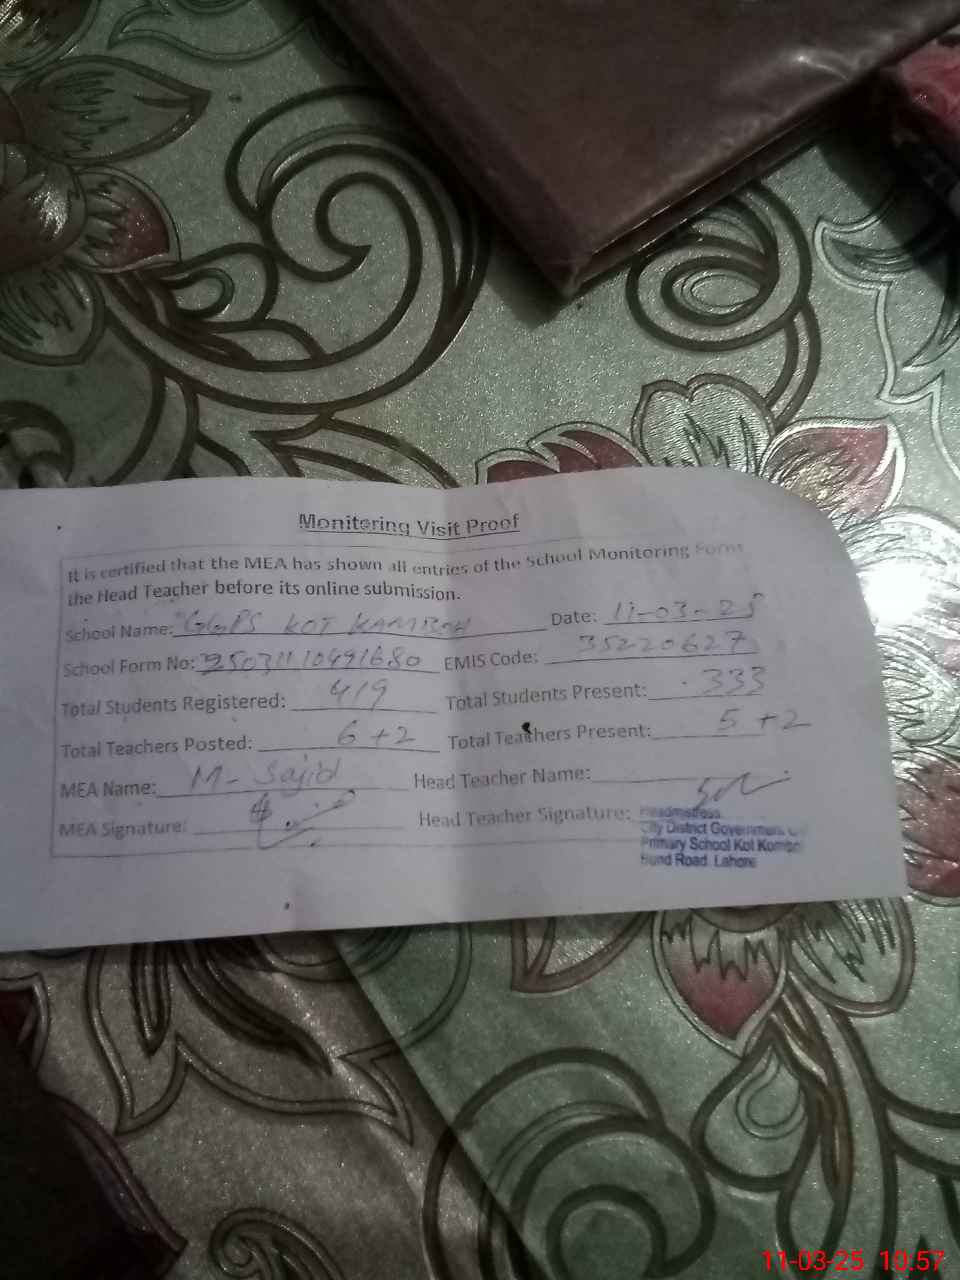 Monitoring Visit Proof
It is certified that the MEA has shown all entries of the School Monitoring Form
the Head Teacher before its online submission.
School Name: GGPS KOT KAMBOH Date: 11-03-25
School Form No: 250311110491680 EMIS Code: 35220627
Total Students Registered: 419 Total Students Present: 333
Total Teachers Posted: 6+2 Total Teachers Present: 5+2
MEA Name: M- Sajid Head Teacher Name:
MEA Signature: Head Teacher Signature:
Headmistress
City District Government
Primary School Kot Kombo
Bund Road Lahore
11-03-25 10:57